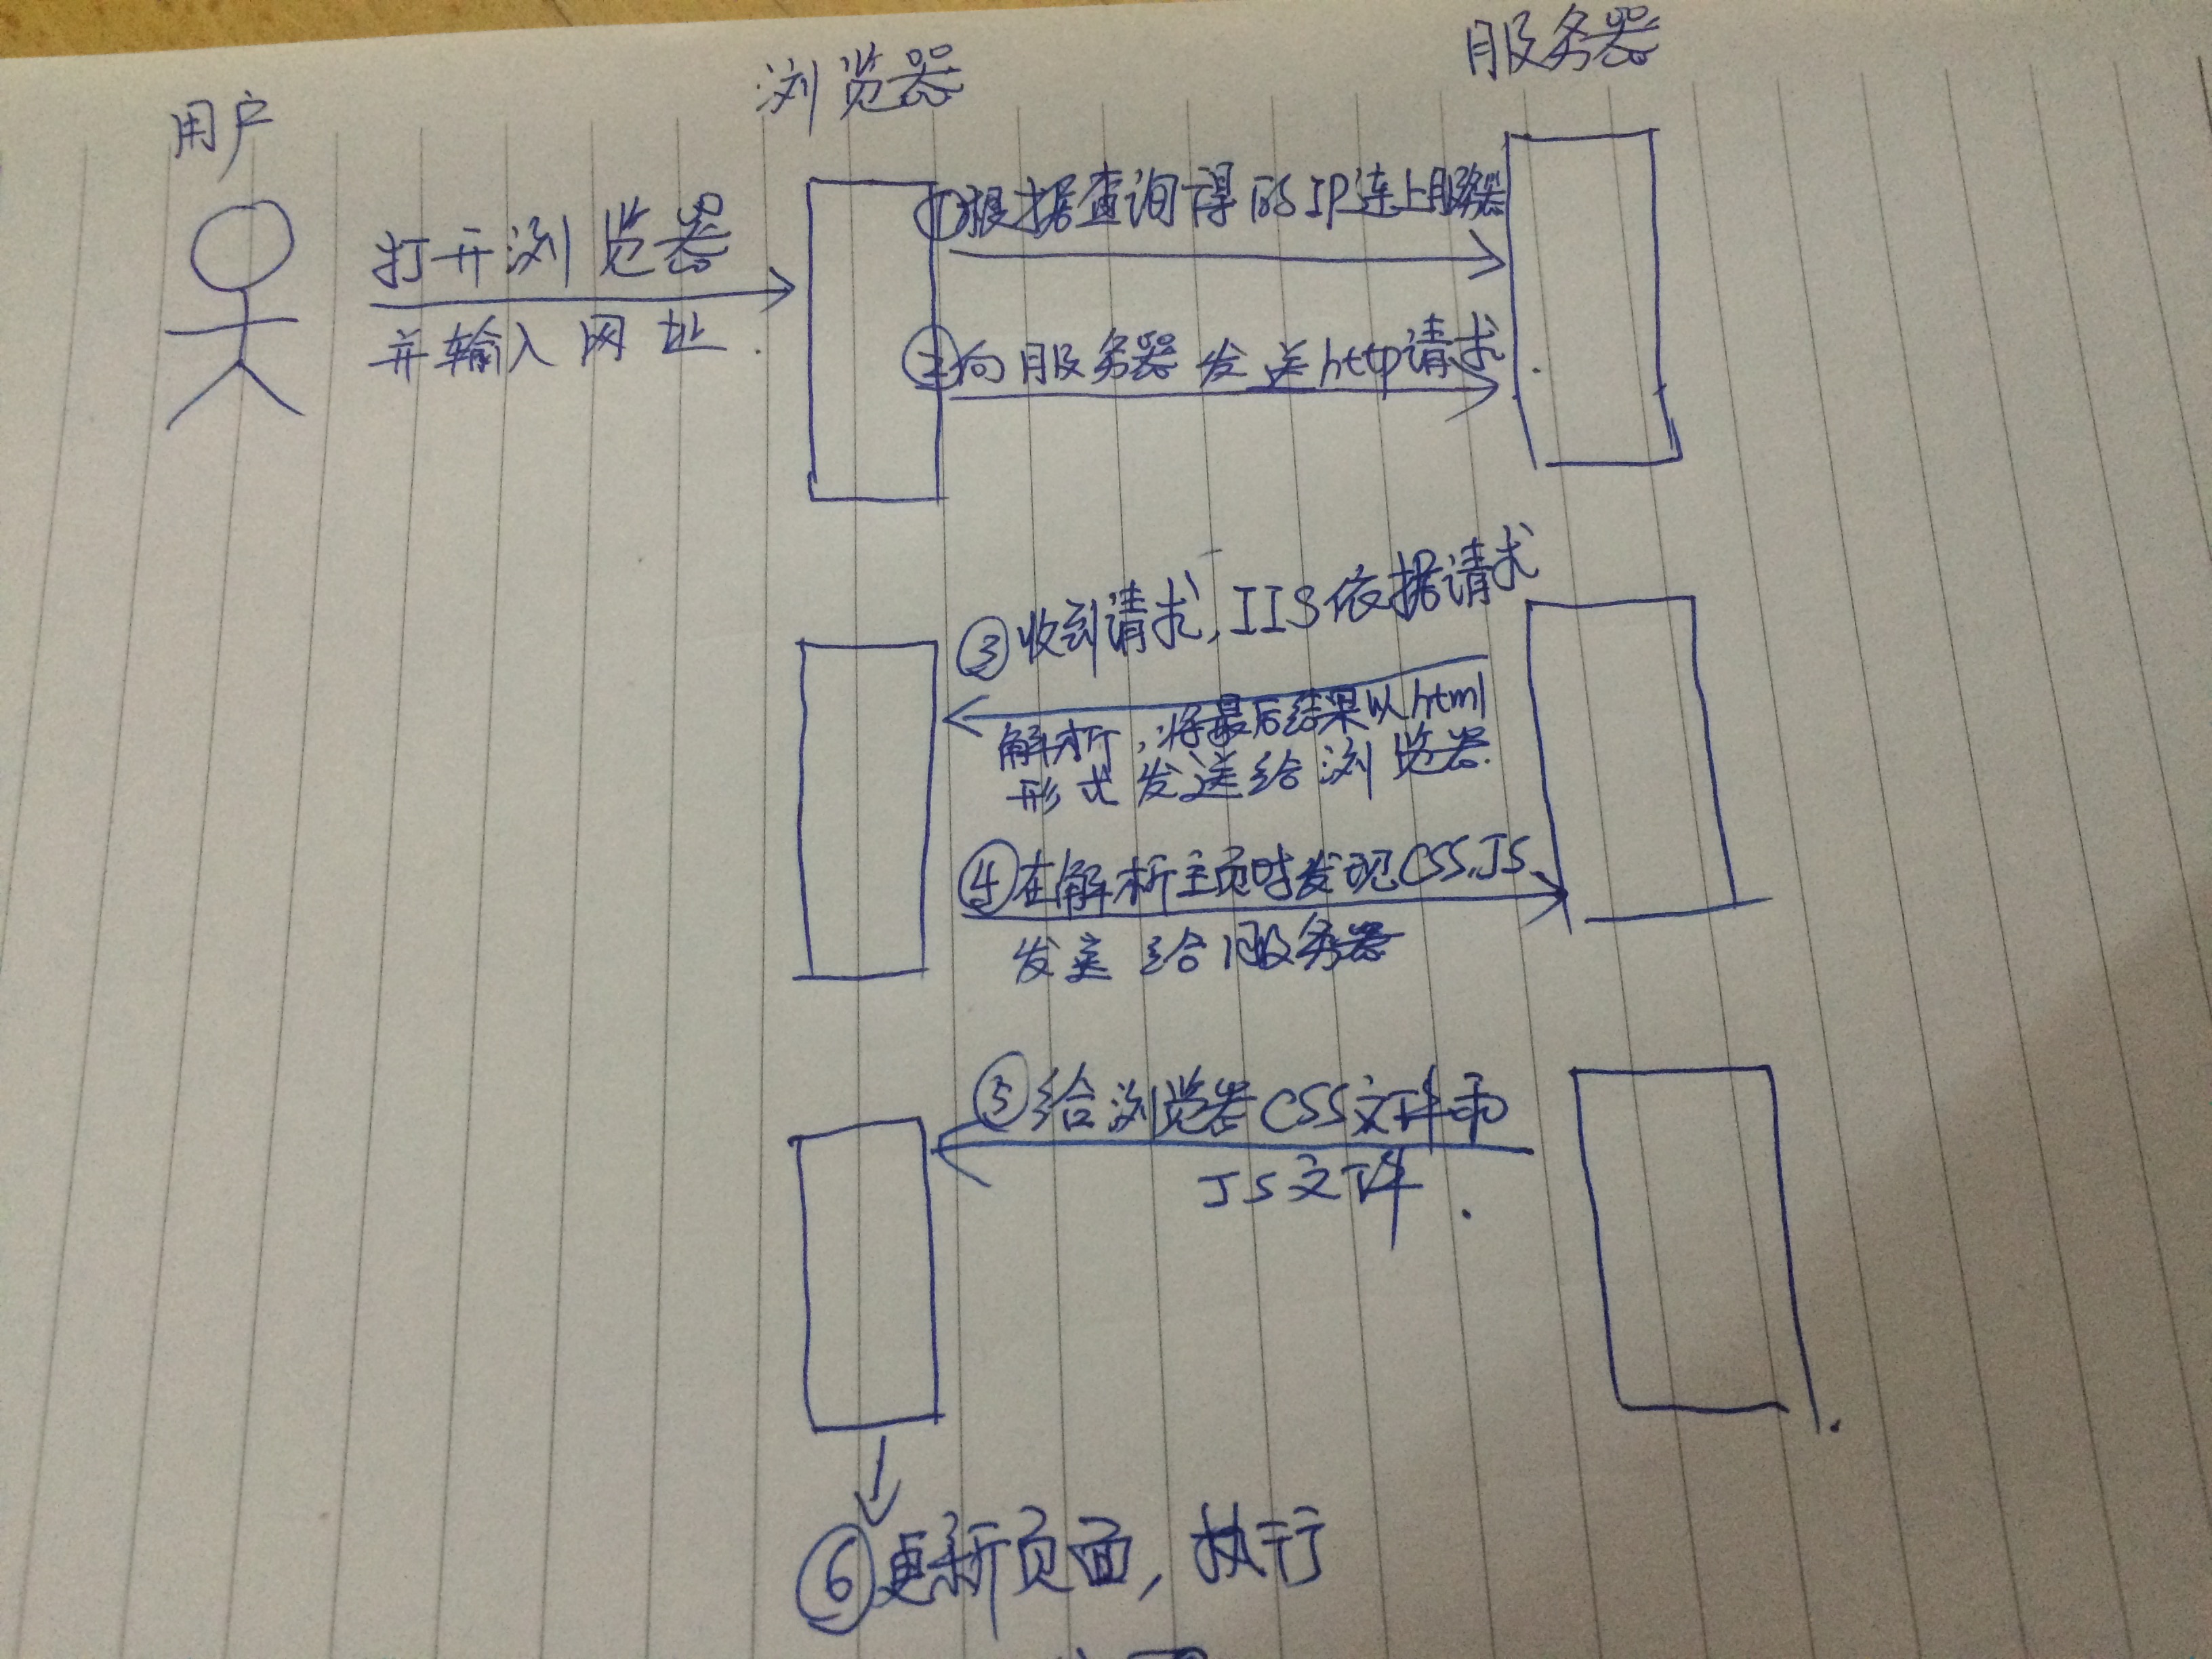 用户
浏览器
服务器
打开浏览器
并输入网址.
①根据查询得的IP连上服务器
②向服务器发送http请求.
③收到请求,IIS依据请求
解析,将最后结果以html
形式发送给浏览器.
④在解析主页时发现CSS.JS、
发送给服务器
⑤给浏览器CSS文件和
JS文件.
⑥更新页面,执行